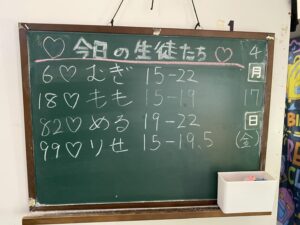 ♡ 今日の生徒たち ♡
6♡ むぎ 15-22
18♡ もも 15-19
82♡ める 19-22
99♡ りせ 15-19.5
4
月
17
日
(金)